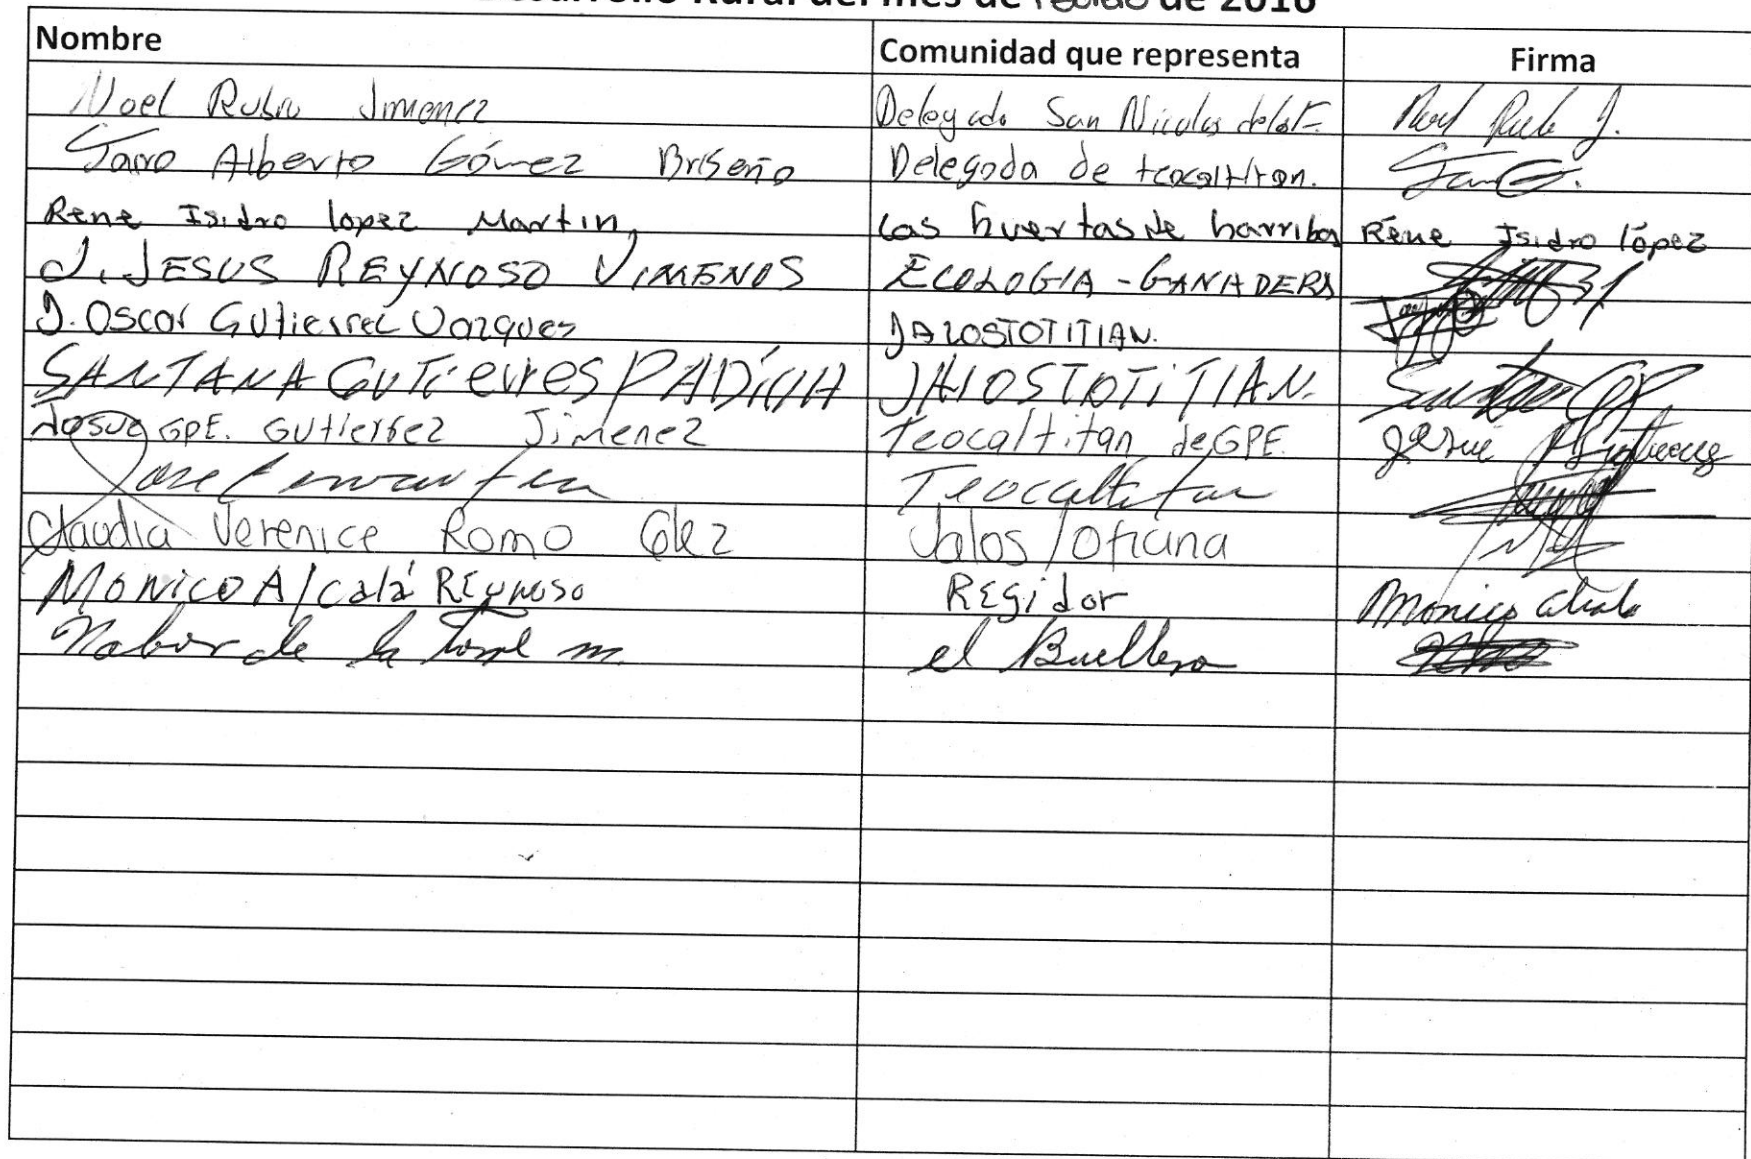 Desarrollo Rural del mes de febrero de 2016
Nombre Comunidad que representa Firma
Noel Rubio Jimenez Delegado San Nicolas delaF. Noel Rubio J.
Alberto Gómez Briseño Delegoda de teocaltitan.
Rene Isidro lopez Martin, las huertas de harriba Réne Isidro lópez
J. JESUS REYNOSO JIMENES ECOLOGIA - GANADERA
J. Oscar Gutierrez Vazques JALOSTOTITIAN.
SANTANA GUTierres PADilla JAlOSTOTiTIAN.
Josue GPE. GUtierrez Jimenez Teocaltitan de GPE. Josue Gutierrez
Jose Teocaltitan
Claudia Verenice Romo Glez Jalos/Oficina
MONICO Alcalá REynoso REgidor Monico Alcala
Nabor de la Torre m. el